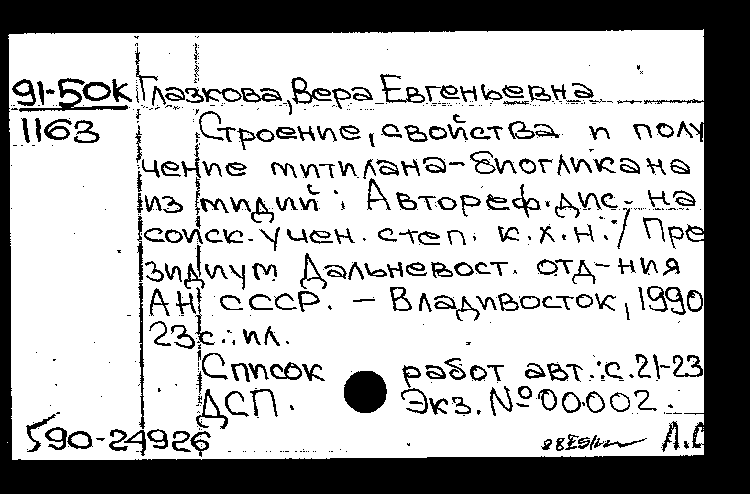 91-50К Глазкова, Вера Евгеньевна
1163 Строение, свойства и полу
чение митилана-биогликана
из мидий : Автореф. дис. на
соиск. учен. степ. к.х.н. / Пре
зидиум Дальневост. отд-ния
АН СССР. – Владивосток, 1990
23 с.: ил.
Список работ авт.: с. 21-23
ДСП. Экз. № 00002.
590-24926